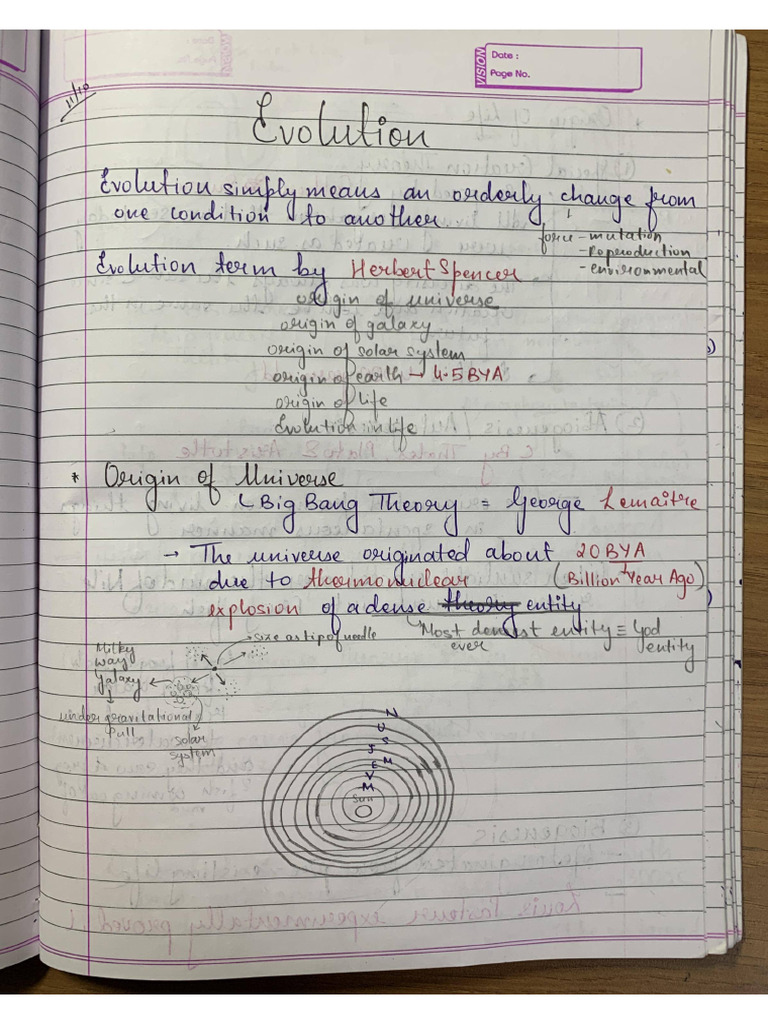 VISION
Date :
Page No.
11/10
Evolution
Evolution simply means an orderly change from
one condition to another
force - mutation
- Reproduction
- environmental
Evolution term by Herbert Spencer
origin of universe
origin of galaxy
origin of solar system
origin of earth → 4.5 BYA
origin of life
Evolution in life
* Origin of Universe
↳ Big Bang Theory = George Lemaitre
→ The universe originated about 20 BYA
due to thermonuclear (Billion Year Ago)
explosion of a dense theory entity
Most densest entity ≡ God
ever entity
size as tip of needle
Milky
way
galaxy
under gravitational
pull
solar
system
N
U
S
J
M
E
V
M
Sun